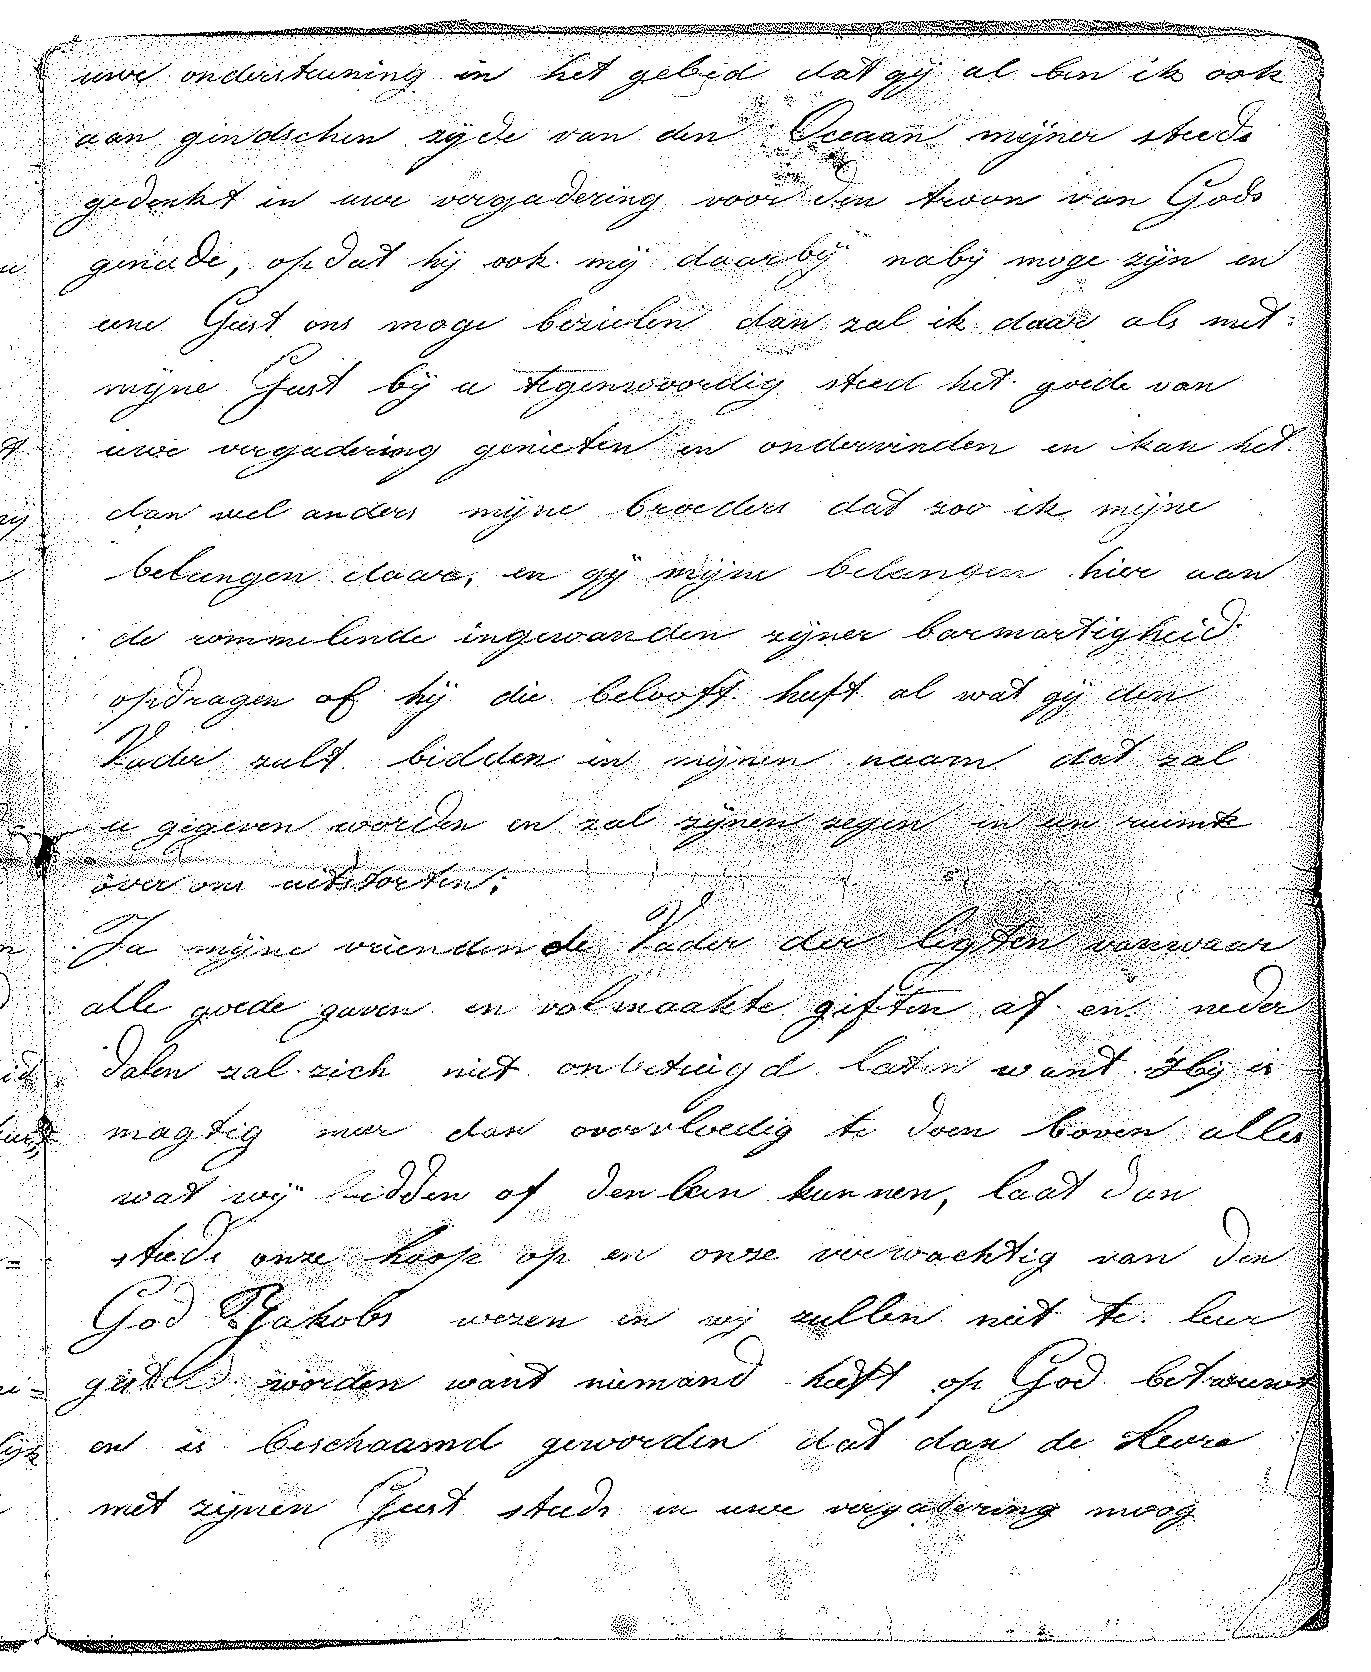 uwe ondersteuning in het gebed dat gij al ben ik ook
aan gindschen zyde van den Oceaan mijner steeds
gedenkt in uwe vergadering voor den troon van Gods
genade, opdat hij ook mij daarbij nabij moge zijn en
eene Geest ons moge bezielen dan zal ik daar als met
mijne Geest bij u tegenwoordig steed het goede van
uwe vergadering genieten en ondervinden en kan het
dan wel anders mijne broeders dat zoo ik mijne
belangen daar, en gij mijne belangen hier aan
de rommelende ingewanden zijner barmartigheid
opdragen of hij die belooft heeft al wat gij den
Vader zult bidden in mijnen naam dat zal
u gegeven worden en zal zijnen zegen in een ruimte
over ons uitstorten;
Ja mijne vrienden de Vader der ligten vanwaar
alle goede gaven en volmaakte giften af en neder
dalen zal zich niet onbetuigd laten want hij is
magtig meer dan overvloedig te doen boven alles
wat wij bidden of denken kunnen, laat dan
steeds onze hoop op en onze verwachtig van den
God Jakobs wezen en wij zullen niet te leur
gesteld worden want niemand heeft op God betrouwt
en is beschaamd geworden dat dan de Heere
met zijnen Geest steeds in uwe vergadering moog